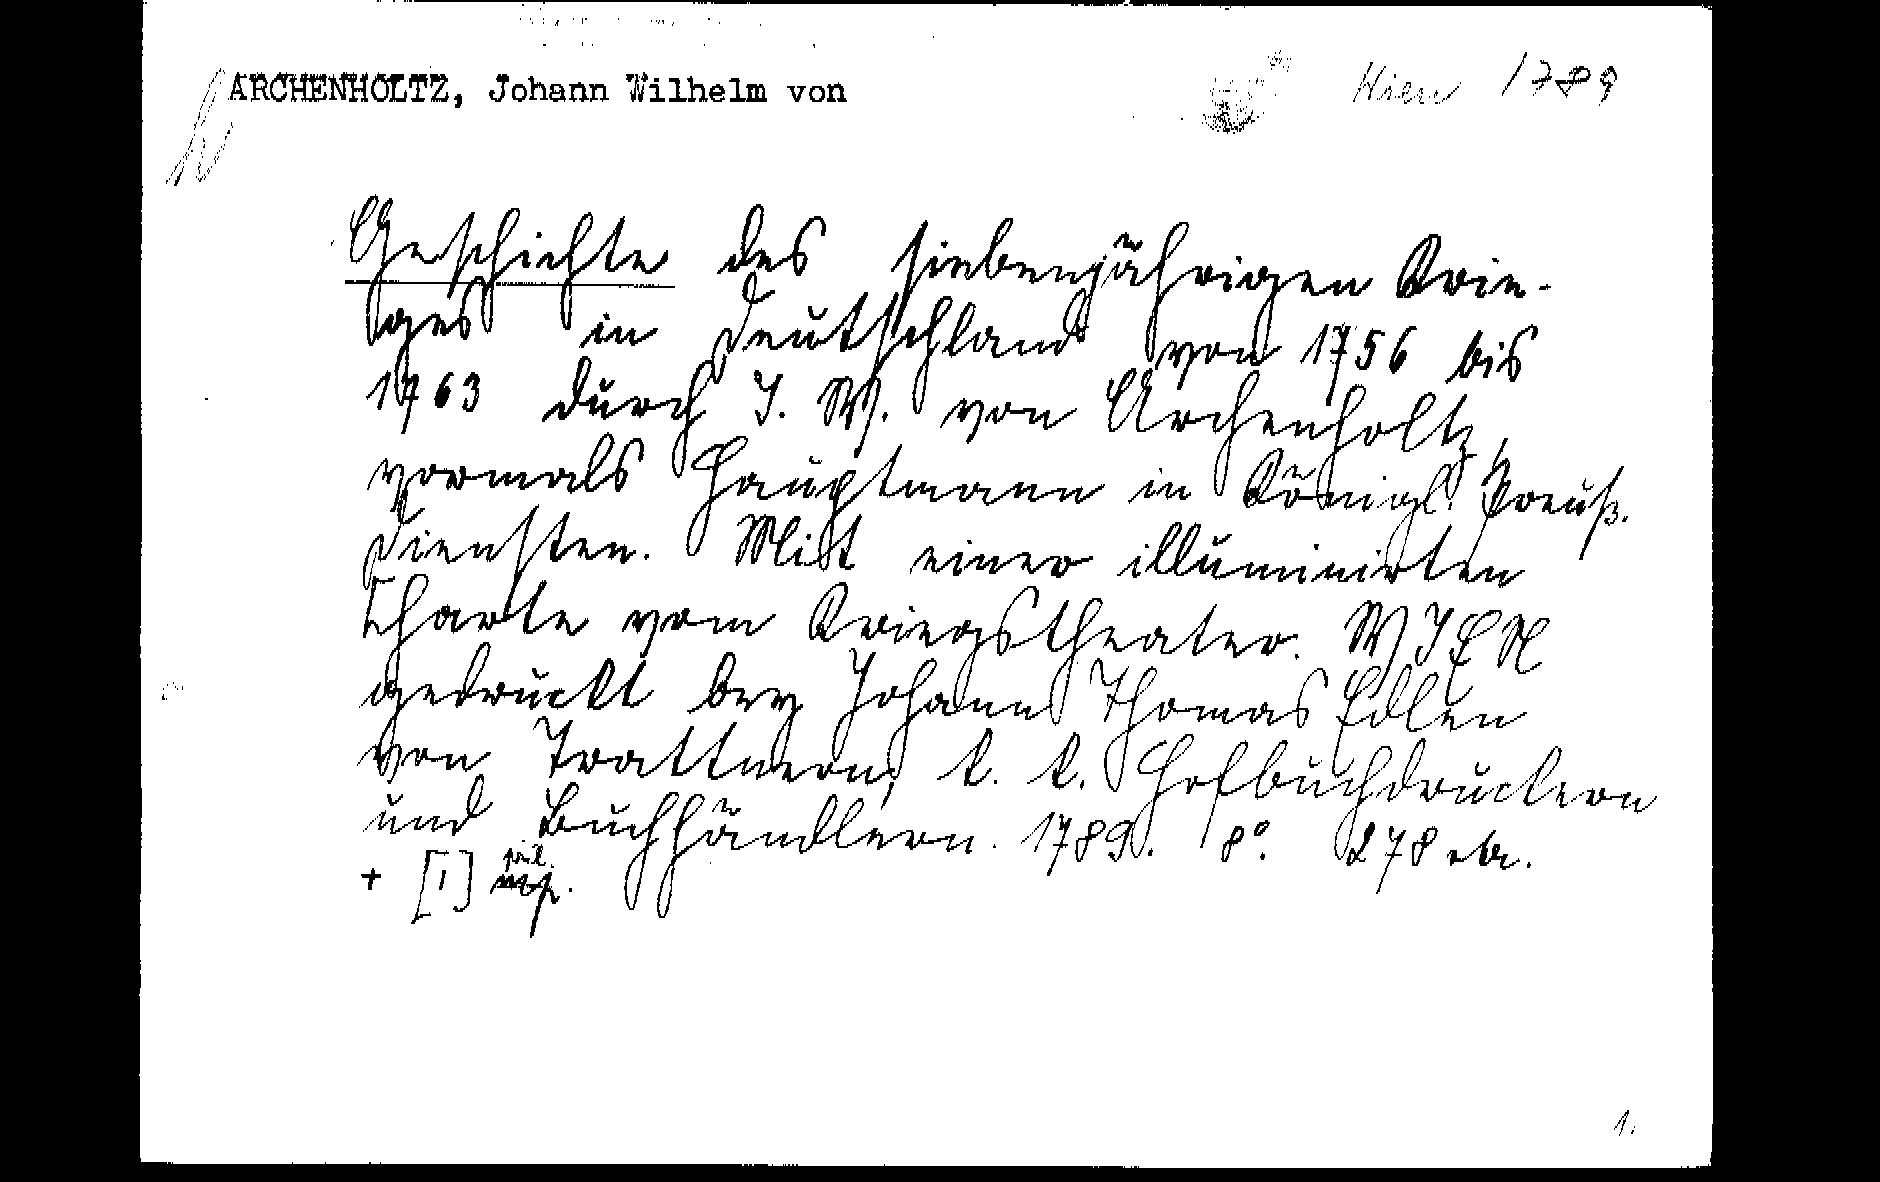 ARCHENHOLTZ, Johann Wilhelm von
Wien 1789
Geschichte des siebenjährigen Krie-
ges in Deutschland von 1756 bis
1763 durch J. W. von Archenholtz,
vormals Hauptmann in Königl. Preuß.
Diensten. Mit einer illuminirten
Charte vom Kriegstheater. WIEN
gedruckt bey Johann Thomas Edlen
von Trattnern, k. k. Hofbuchdruckern
und Buchhändlern. 1789. 8°. 278 str.
+ [1] pril.
1.